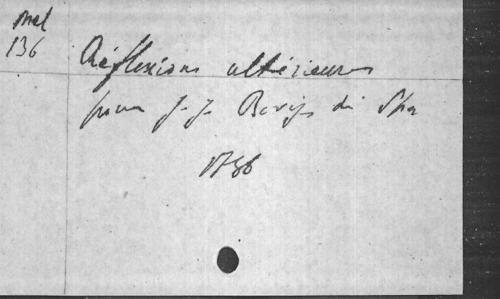 Mel
136
Réflexions ultérieures
pour J. J. de Spa
17